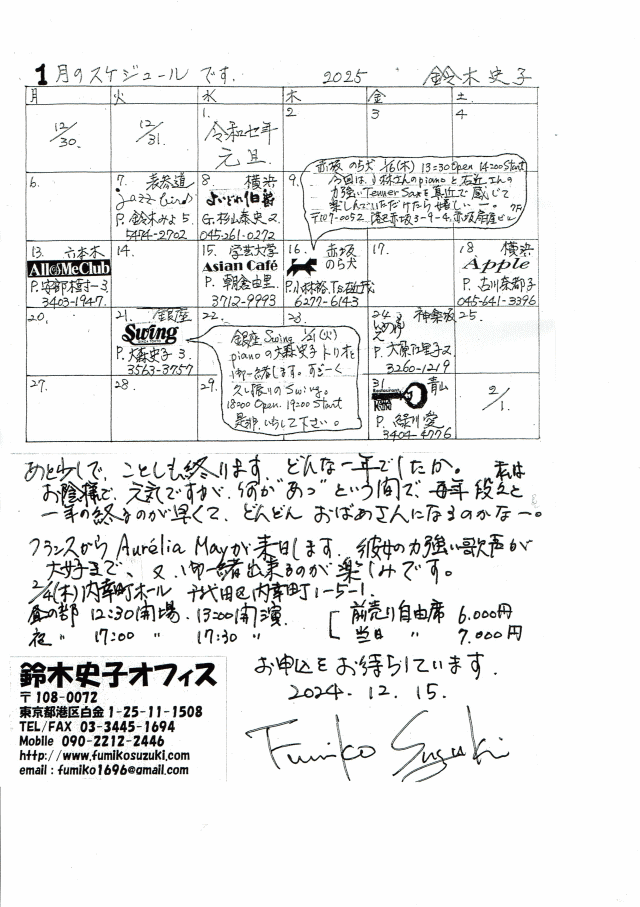 1月のスケジュールです. 2025 鈴木史子
月 火 水 木 金 土
12/30. 12/31. 1. 令和七年 元旦. 2 3 4
6. 7. 表参道 jazz bird P. 鈴木みよ5. 5474-2702
8. 横浜 よいどれ伯爵 G. 杉山泰史 045.261-0272
9.
赤坂 のら犬 1/16(木) 13:30 Open 14:00 Start
今回は、小林さんのpianoと右近さんの
力強いTenner Saxを真近で感じて
楽しんでいただけたら嬉しいー。
〒107-0052 港区赤坂3-9-4. 7F
13. 六本木 All of Me Club P. 安部 3403-1947.
14.
15. 学芸大学 Asian Café P. 朝倉由里. 3712-9993
16. 赤坂 のら犬 P. 小林裕. 6277-6143
17.
18 横浜 Apple P. 古川奈都子 045-641-3396
20.
21. 銀座 Swing P. 大森史子 3. 3563-3757
22. 23.
銀座 Swing 1/21 (火)
pianoの大森史子トリオと
御一緒します。すごーく
久し振りのSwing。
18:00 Open. 19:00 Start
是非、いらして下さい。
24. 神楽坂 P. 大原 3260-1219
25.
27. 28. 29.
31. 青山 P. 3404-4776
2/1.
あと少しで、ことしも終ります。どんな一年でしたか。 私は
お陰様で、元気ですが、何が“あっ”という間で、毎年 段々と
一年の終るのが早くて、どんどん おばあさんになるのかなー。
フランスから Aurélia Mayが来日します。彼女の力強い歌声が
大好きで、又、御一緒出来るのが楽しみです。
2/4(木) 内幸町ホール 千代田区内幸町1-5-1.
昼の部 12:30開場. 13:00開演. 前売り自由席 6.000円
夜 〃 17:00 〃 17:30 〃 当日 〃 7.000円
お申込をお待ちしています.
2024. 12. 15.
Fumiko Suzuki
鈴木史子オフィス
〒108-0072
東京都港区白金 1-25-11-1508
TEL/FAX 03-3445-1694
Mobile 090-2212-2446
http://www.fumikosuzuki.com
email : fumiko1696@gmail.com